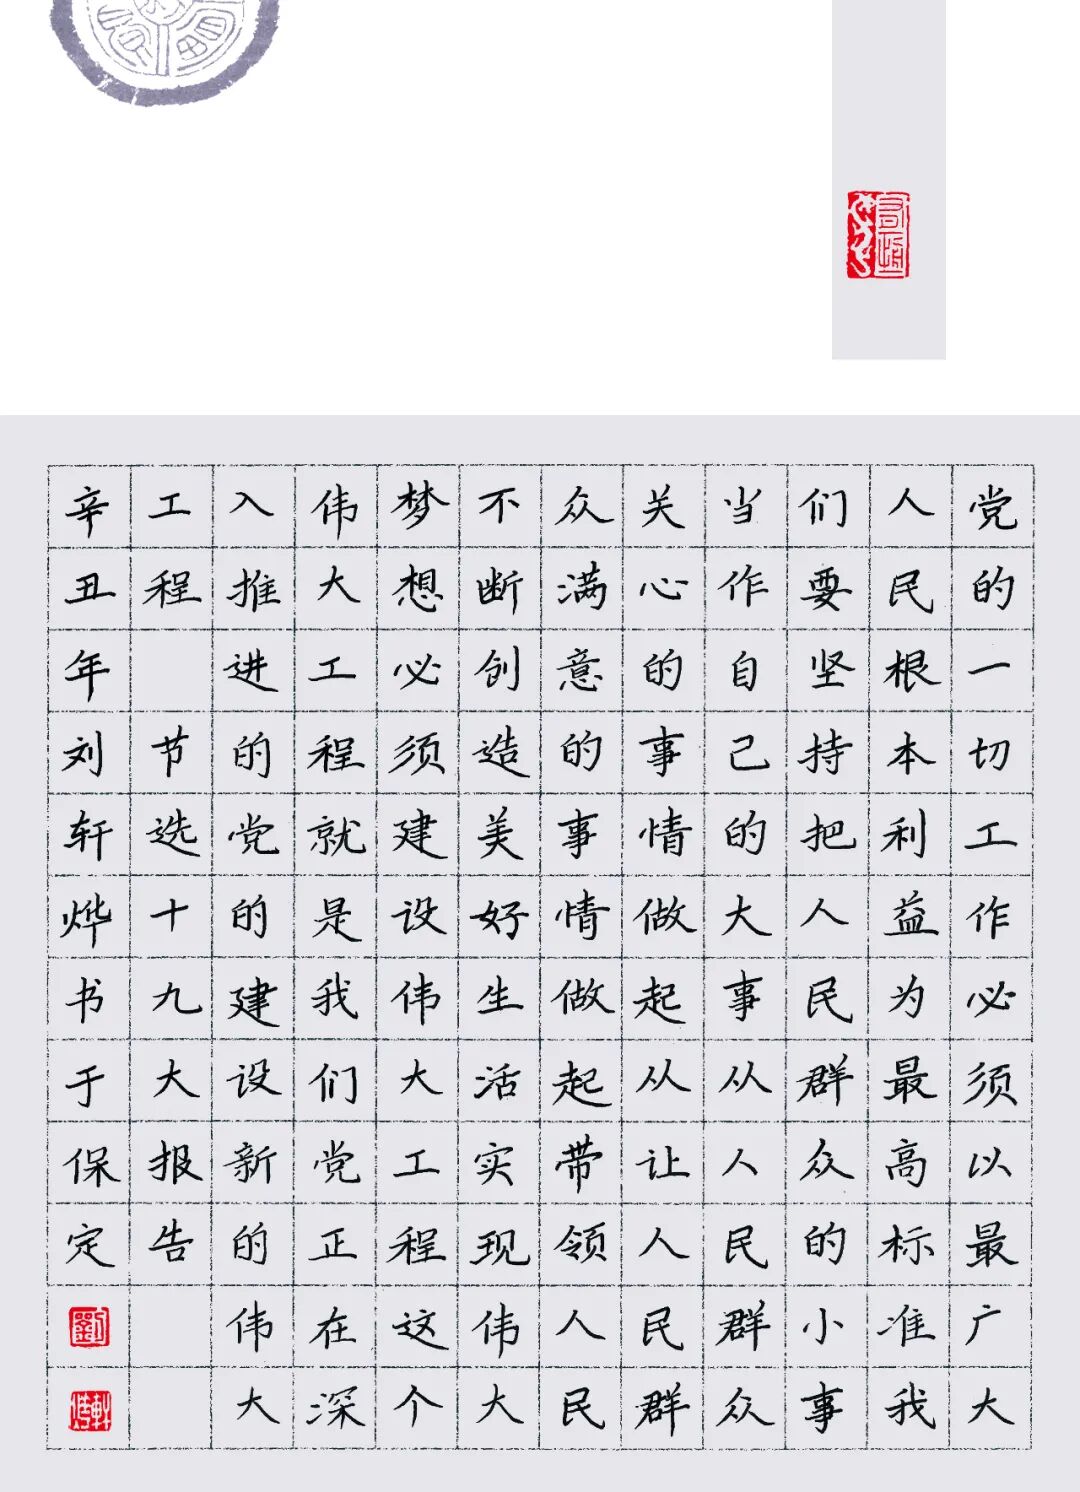 党的一切工作必须以最广大
人民根本利益为最高标准我
们要坚持把人民群众的小事
当作自己的大事从人民群众
关心的事情做起从让人民群
众满意的事情做起带领人民
不断创造美好生活实现伟大
梦想必须建设伟大工程这个
伟大工程就是我们党正在深
入推进的党的建设新的伟大
工程 节选十九大报告
辛丑年刘轩烨书于保定